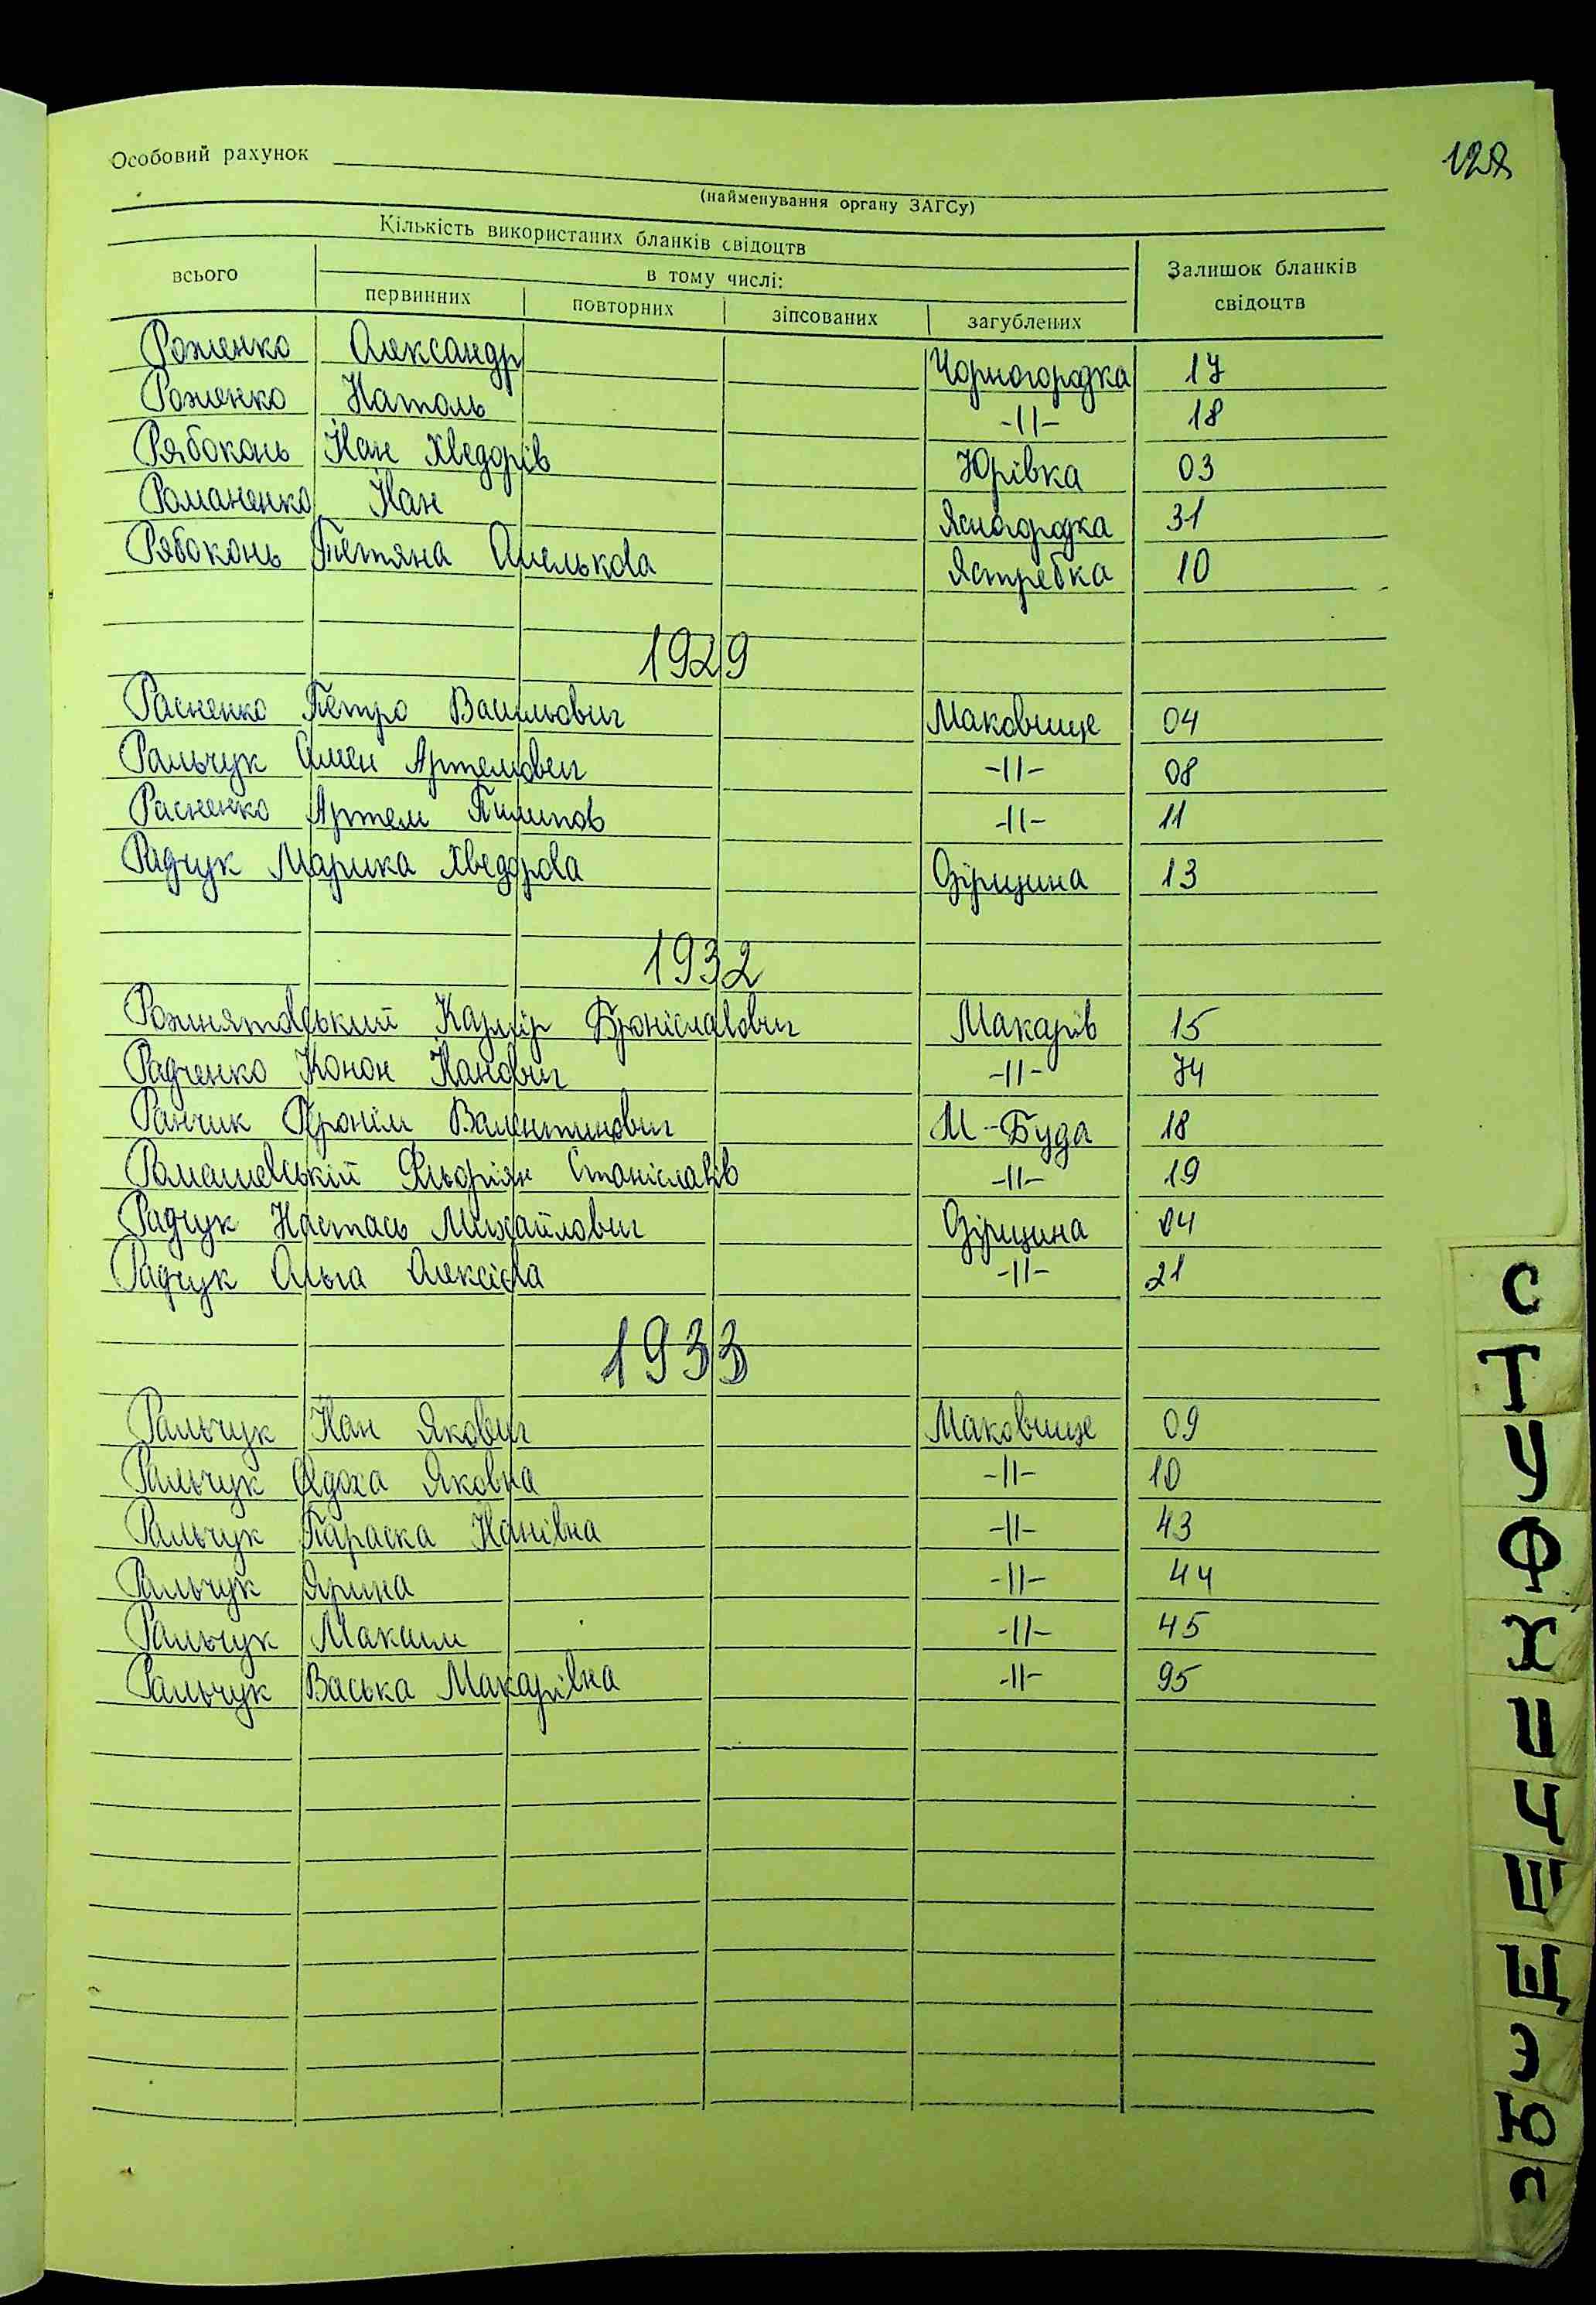 Особовий рахунок
128
(найменування органу ЗАГСу)
Кількість використаних бланків свідоцтв
всього в тому числі: Залишок бланків свідоцтв
первинних повторних зіпсованих загублених
Роженко Олександр Чорногородка 17
Роженко Наталь -ІІ- 18
Рябоконь Йван Хведорів Юрівка 03
Романенко Йван Ясногородка 31
Рябоконь Тетяна Омелькова Ястребка 10
1929
Расненко Петро Васильович Маковище 04
Ральчук Семен Артемович -ІІ- 08
Расненко Артем Пилипов -ІІ- 11
Радчук Марика Хведорова Озірщина 13
1932
Рожнятовський Казмір Броніславович Макарів 15
Радченко Конон Йванович -ІІ- 74
Ранчик Ієронім Валентинович М-Буда 18
Ромашевській Фльоріян Станіславів -ІІ- 19
Радчук Настась Михайлович Озірщина 04
Радчук Ольга Олексієва -ІІ- 21
1933
Ральчук Йван Якович Маковище 09
Ральчук Явдоха Яковна -ІІ- 10
Ральчук Параска Йванівна -ІІ- 43
Ральчук Ярина -ІІ- 44
Ральчук Максим -ІІ- 45
Ральчук Васька Макарівна -ІІ- 95
С
Т
У
Ф
Х
Ц
Ч
Ш
Щ
Э
Ю
Я